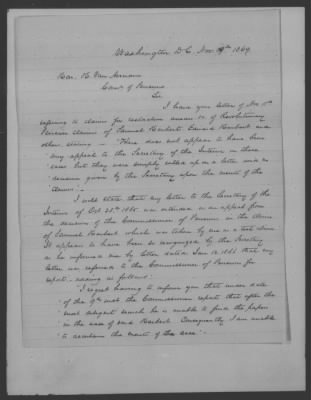 Washington D.C. Nov. 19th 1869
Hon. H. Van Aernam
Com'r of Pensions
Sir
I have your letter of Nov 1st
referring to claims for restoration under of Revolutionary
Pension claims of Samuel Barbert, Edward Barbert and
others, stating - "There does not appear to have been
any appeal to the Secretary of the Interior in these
cases but they were simply called up on a letter and no
decision given by the Secretary upon the merits of the
claims".
I will state that my letter to the Secretary of the
Interior of Oct 25th 1865 was intended as an appeal from
the decision of the Commissioner of Pensions in the claim
of Samuel Barbert which was taken by me as a test claim
It appears to have been so recognized by the Secretary
as he informed me by letter dated Jan 12. 1866 that my
letter was referred to the Commissioner of Pensions for
report - adding as follows:
"I regret having to inform you that under date
of the 9th inst the Commissioner reports that after the
most diligent search he is unable to find the papers
in the case of said Barbert. Consequently I am unable
to ascertain the merits of the case."